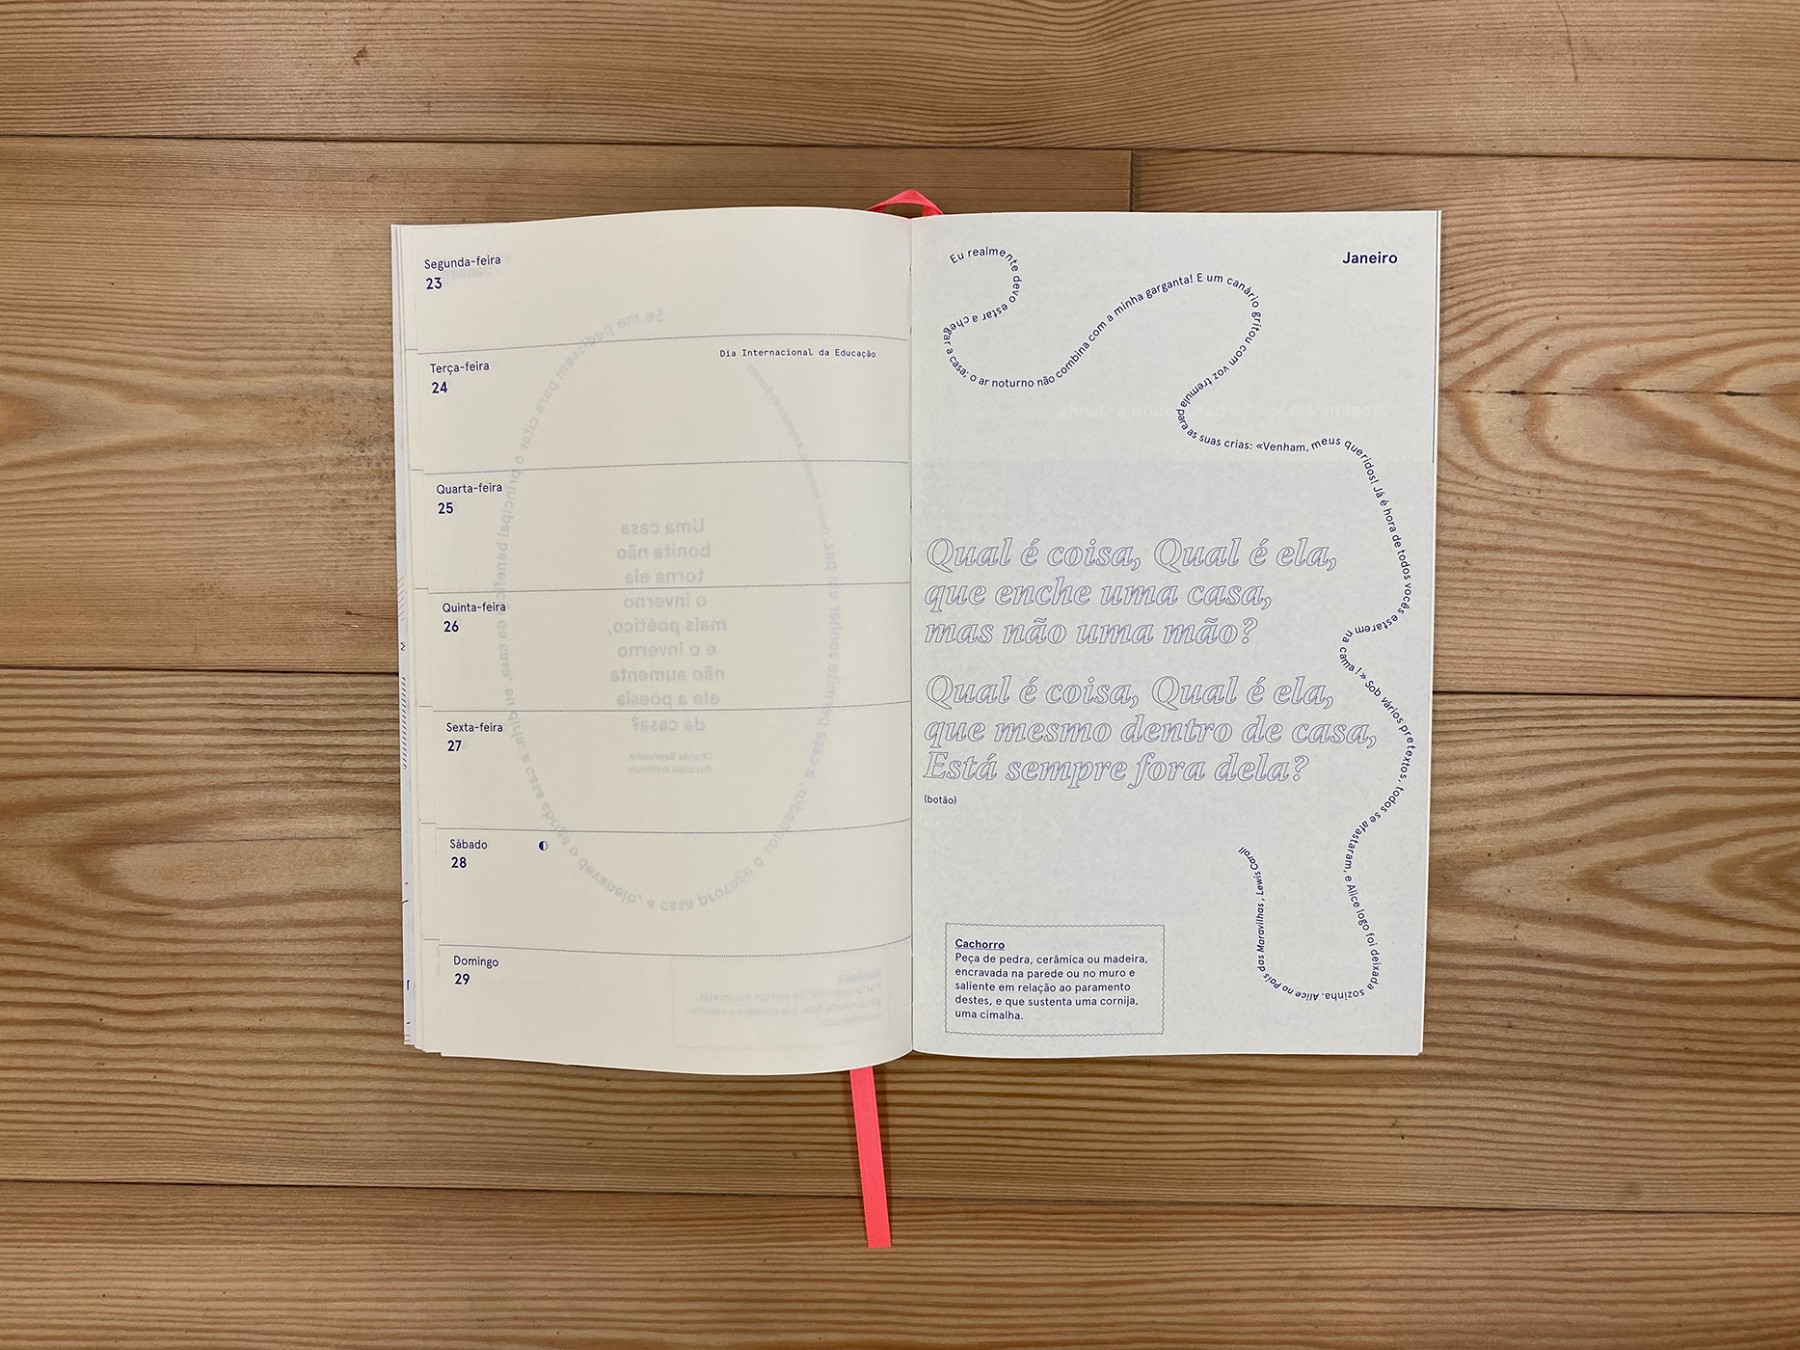 Segunda-feira
23
Dia Internacional da Educação
Terça-feira
24
Quarta-feira
25
Quinta-feira
26
Sexta-feira
27
Sábado
28
Domingo
29
Janeiro
Eu realmente devo estar a chegar a casa; o ar noturno não combina com a minha garganta! E um canário gritou com voz tremula para as suas crias: «Venham, meus queridos! Já é hora de todos vocês estarem na cama!» Sob vários pretextos, todos se afastaram, e Alice logo foi deixada sozinha. Alice no País das Maravilhas, Lewis Caroll
Qual é coisa, Qual é ela,
que enche uma casa,
mas não uma mão?
Qual é coisa, Qual é ela,
que mesmo dentro de casa,
Está sempre fora dela?
(botão)
Cachorro
Peça de pedra, cerâmica ou madeira,
encravada na parede ou no muro e
saliente em relação ao paramento
destes, e que sustenta uma cornija,
uma cimalha.
Uma casa
bonita não
torna ela
o inverno
mais poético,
e o inverno
não aumenta
ele a poesia
da casa?